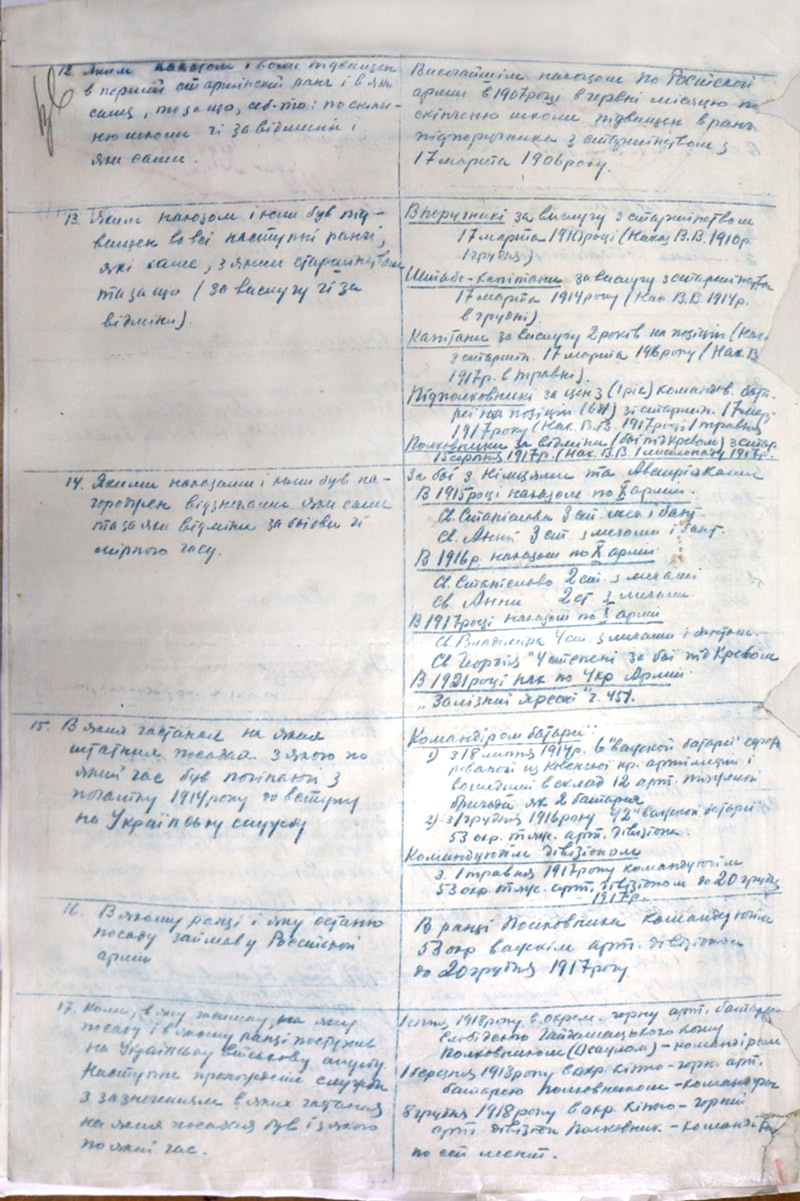 12. Яким наказом і коли підвищен
в перший старшинский ранг і в яки
саме, та за що, себ-то: по скін-
ню школи чі за відміни і
яки саме.
Височайшім наказом по Російскої
армії в 1907 році в червні місяцю по
скінченю школи підвищен в ранг
підпоручника з старшінством з
17 марта 1906 року.
13. Яким наказом і коли був під-
вищен во всі наступні ранги,
які саме, з яким старшінством
та за що (за вислугу чі за
відміни).
В поручникі за вислугу з старшінством
17 марта 1910 році (Наказ В.В. 1910 р.
грудня)
Штабс-капітани за вислугу з старшінства
17 марта 1914 року (Нак. В.В. 1914 р.
в грудні).
Капітани за вислугу 2 років на позіції (Нак.
з старшін. 17 марта 1916 року (Нак. В.
1917 р. в травні).
Підполковникі за ценз (1 рік) командов. бата-
реі на позіціі зі старшін. 17 мар.
1917 року (Нак. В.В. 1917 році травня
Полковники за відміни (бої під Кревом) з стар.
15 серпня 1917 р. (Нак. В.В. листопаду 1917 р.
14. Якими наказами і коли був на-
городжен відзнаками яки саме
та за яки відміни за боїови чі
мірного часу.
За бої з Німцями та Австріяками
В 1915 році наказом по X армії.
Св. Станіслава 3 ст. меч і бант.
Св. Анни 3 ст. з мечами і бант.
В 1916 р. наказом по X армії
Св. Станіслава 2 ст. з мечами
Св. Анни 2 ст з мечами
В 1917 році наказом по X армії
Св. Владіміра 4 ст. з мечами і бантом.
Св. Георгія 4 степені за бої під Кревом
В 1921 році нак по Укр Армії
„Залізний Хрест" ч. 451.
15. В яких частинах на яких
штатних посадах з якого по
який час був починаючі з
початку 1914 року до вступу
на Українську службу
Командіром батареї:
1) з 18 лютня 1914 р. 6 важской батареї сфор-
рованої из Ковенскої кр. артілерії і
вошедший в склад 12 арт. тяжелой
бригади як 2 батарея
2) з 1 грудня 1916 року "42" важской батареї
53 окр. тяж. арт. дівізіона
Командуючім дівізіоном
з 1 травня 1917 року командуючім
53 окр. тяж. арт. дівізіоном до 20 грудня
1917 р.
16. В якому ранзі і яку останю
посаду займав у Російской
армії
В ранзі Полковника командуючім
53 окр важскім арт. дівізіоном
до 20 грудня 1917 року
17. Коли, в яку частину, на яку
посаду і в якому ранзі поступив
на Українську військову службу.
Наступне проходження служби
з зазначенням в яких частинах
на яких посадах був і з якого
по який час.
1918 року в окрем. горну арт. батарею
Слобідского Гайдамацького кошу
Полковником (Осаулом) – командіром
1 березня 1918 року в окр. кінно-горн. арт.
батарею Полковником – командіром
8 грудня 1918 року в окр. кінно-горній
арт. дівізіон Полковник – командіром
по сей мент.